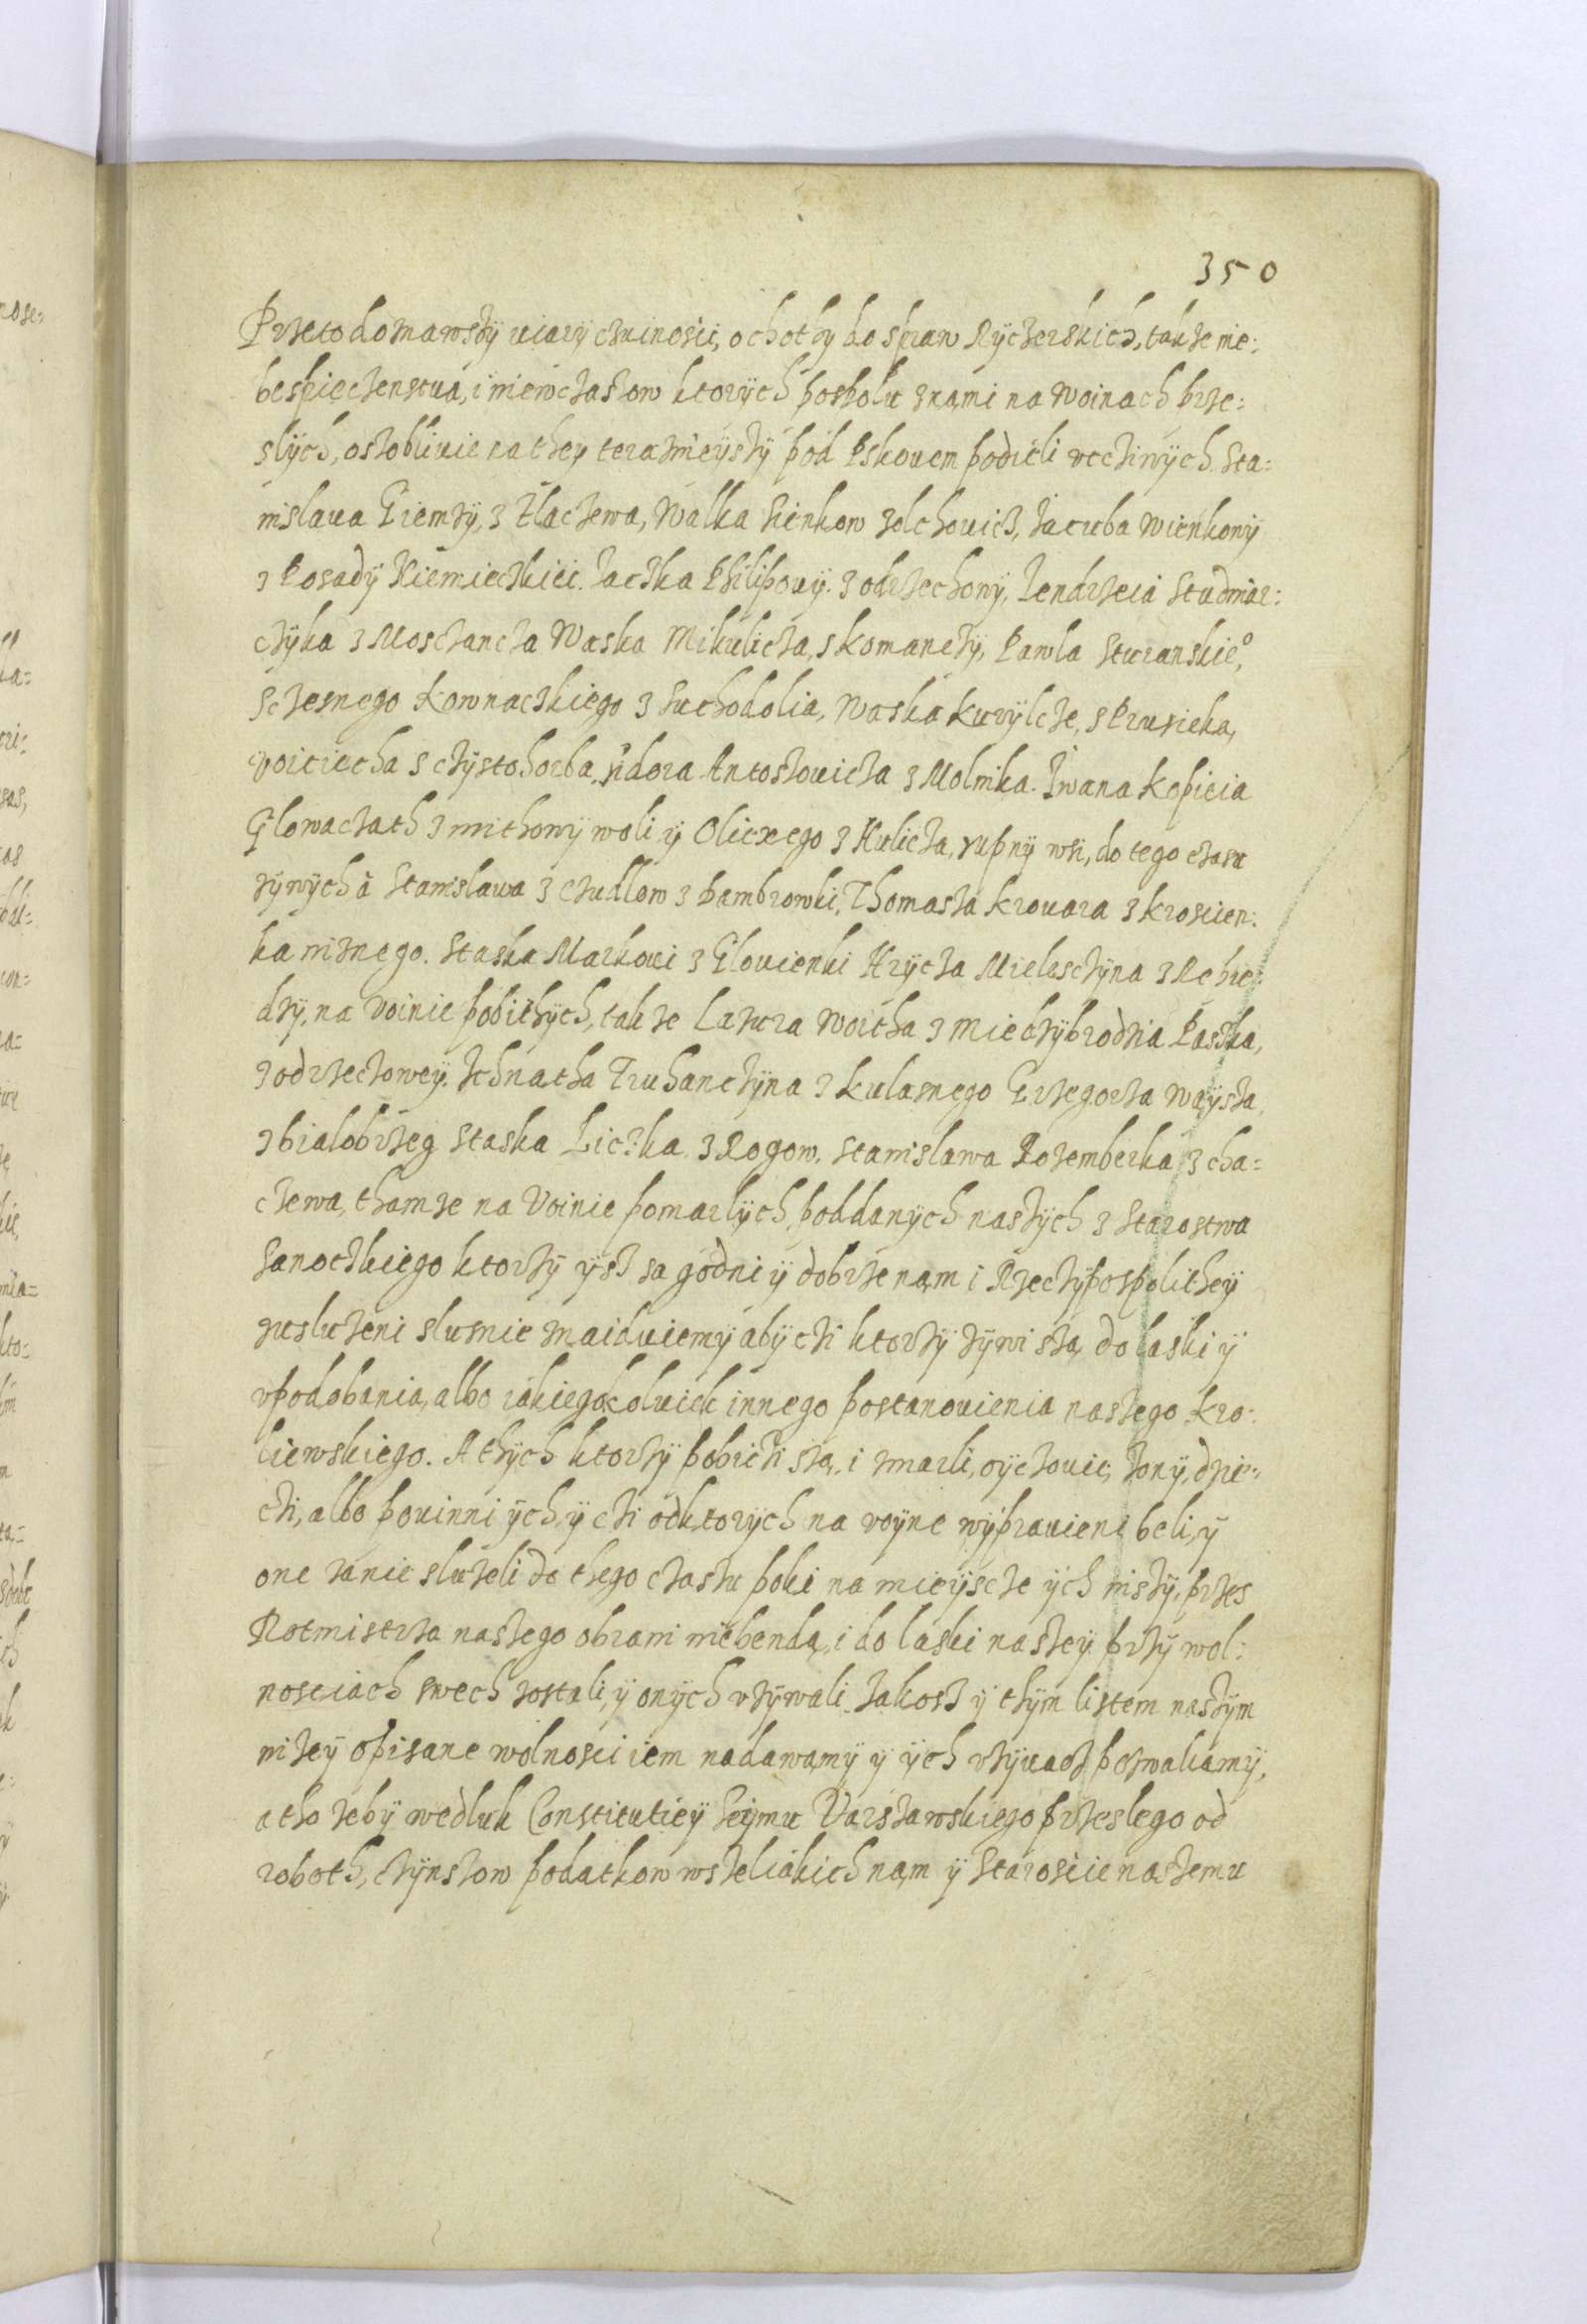 350
Przeto doznawszÿ viarÿ czuinosci, ochothÿ do spraw Rÿczerskich, takze nie:
bespieczenstva, i niewczasow ktorÿch pospolu znami na woinach prze:
slÿch, oszoblivie na they teraznieÿszÿ pod Pskovem podieli vcztiwÿch Sta:
nislava Giemzÿ, z Tlaczewa, Walka Sienkow zolchovicz, Jacuba Wienkowÿ
z Posadÿ Niemieczkiei. Jaczka Philipovÿ. z odrzechowÿ, Jendrzeia Studniar:
czÿka z Mosczancza Waska Mikulicza, skomanczÿ, Pawla Sturanskieº,
Sczesnego Kownaczkiego z Suchodolia, Waska kurÿlcze, s Prusieka,
voiciecha s czÿstohorba, sidora Antoszovicza z Wolnika. Iwana kopicia
Glowaczath z mithowÿ woli ÿ Olicxego z Hulicza, rupnÿ wsi, do tego czasu
zÿwÿch a Stanislawa z czudlow z Bambrowki, Thomasza krovara z kroscien:
ka niznego. Staska Markovi z Glovienki Hrÿcza Mielesczÿna z Rebie:
dzÿ, na voinie pobithÿch, takze Lazura Woitha z Miedzÿbrodzia Paszka,
z odrzechowey. Ichnatha Truhanczÿna z kulasnego Grzegorza Waÿsza
z bialobrzeg Staska Liczka z Rogow. Stanislawa Rozemberka z cha=
czewa, thamze na Voinie pomarlÿch, poddanÿch naszÿch z Starostwa
Sanoczkiego ktorzÿ ÿsz sa godni ÿ dobrze nam i Rzeczÿpospolitheÿ
zusluzeni slusnie znaiduiemÿ abÿ czi ktorzÿ zÿwi sza, do laski ÿ
vpodobania, albo iakiegokolviek innego postanovienia naszego kro:
liewskiego. A thÿch ktorzÿ pobiczi sza, i zmarli, oÿczovie, zonÿ, dzie:
czi, albo povinni ÿch, ÿ czi odktorÿch na voÿne wÿpravieni beli, ÿ
one zanie sluzeli do thego czaszu poki na mieÿscze ÿch niszÿ, przes
Rotmistrza naszego obrani niebenda, i do laski naszeÿ przÿ wol:
nosciach swech zostali, ÿ onÿch vzÿwali. Jakosz ÿ thÿm listem naszÿm
nizeÿ opisane wolnosci iem nadawamÿ ÿ ÿch vzÿvacz pozwaliamÿ,
a tho zebÿ wedluk Constitutieÿ Seÿmu Varszawskiego przeslego od
roboth, czÿnszow podatkow wszeliakich nam ÿ Staroscie naszemu